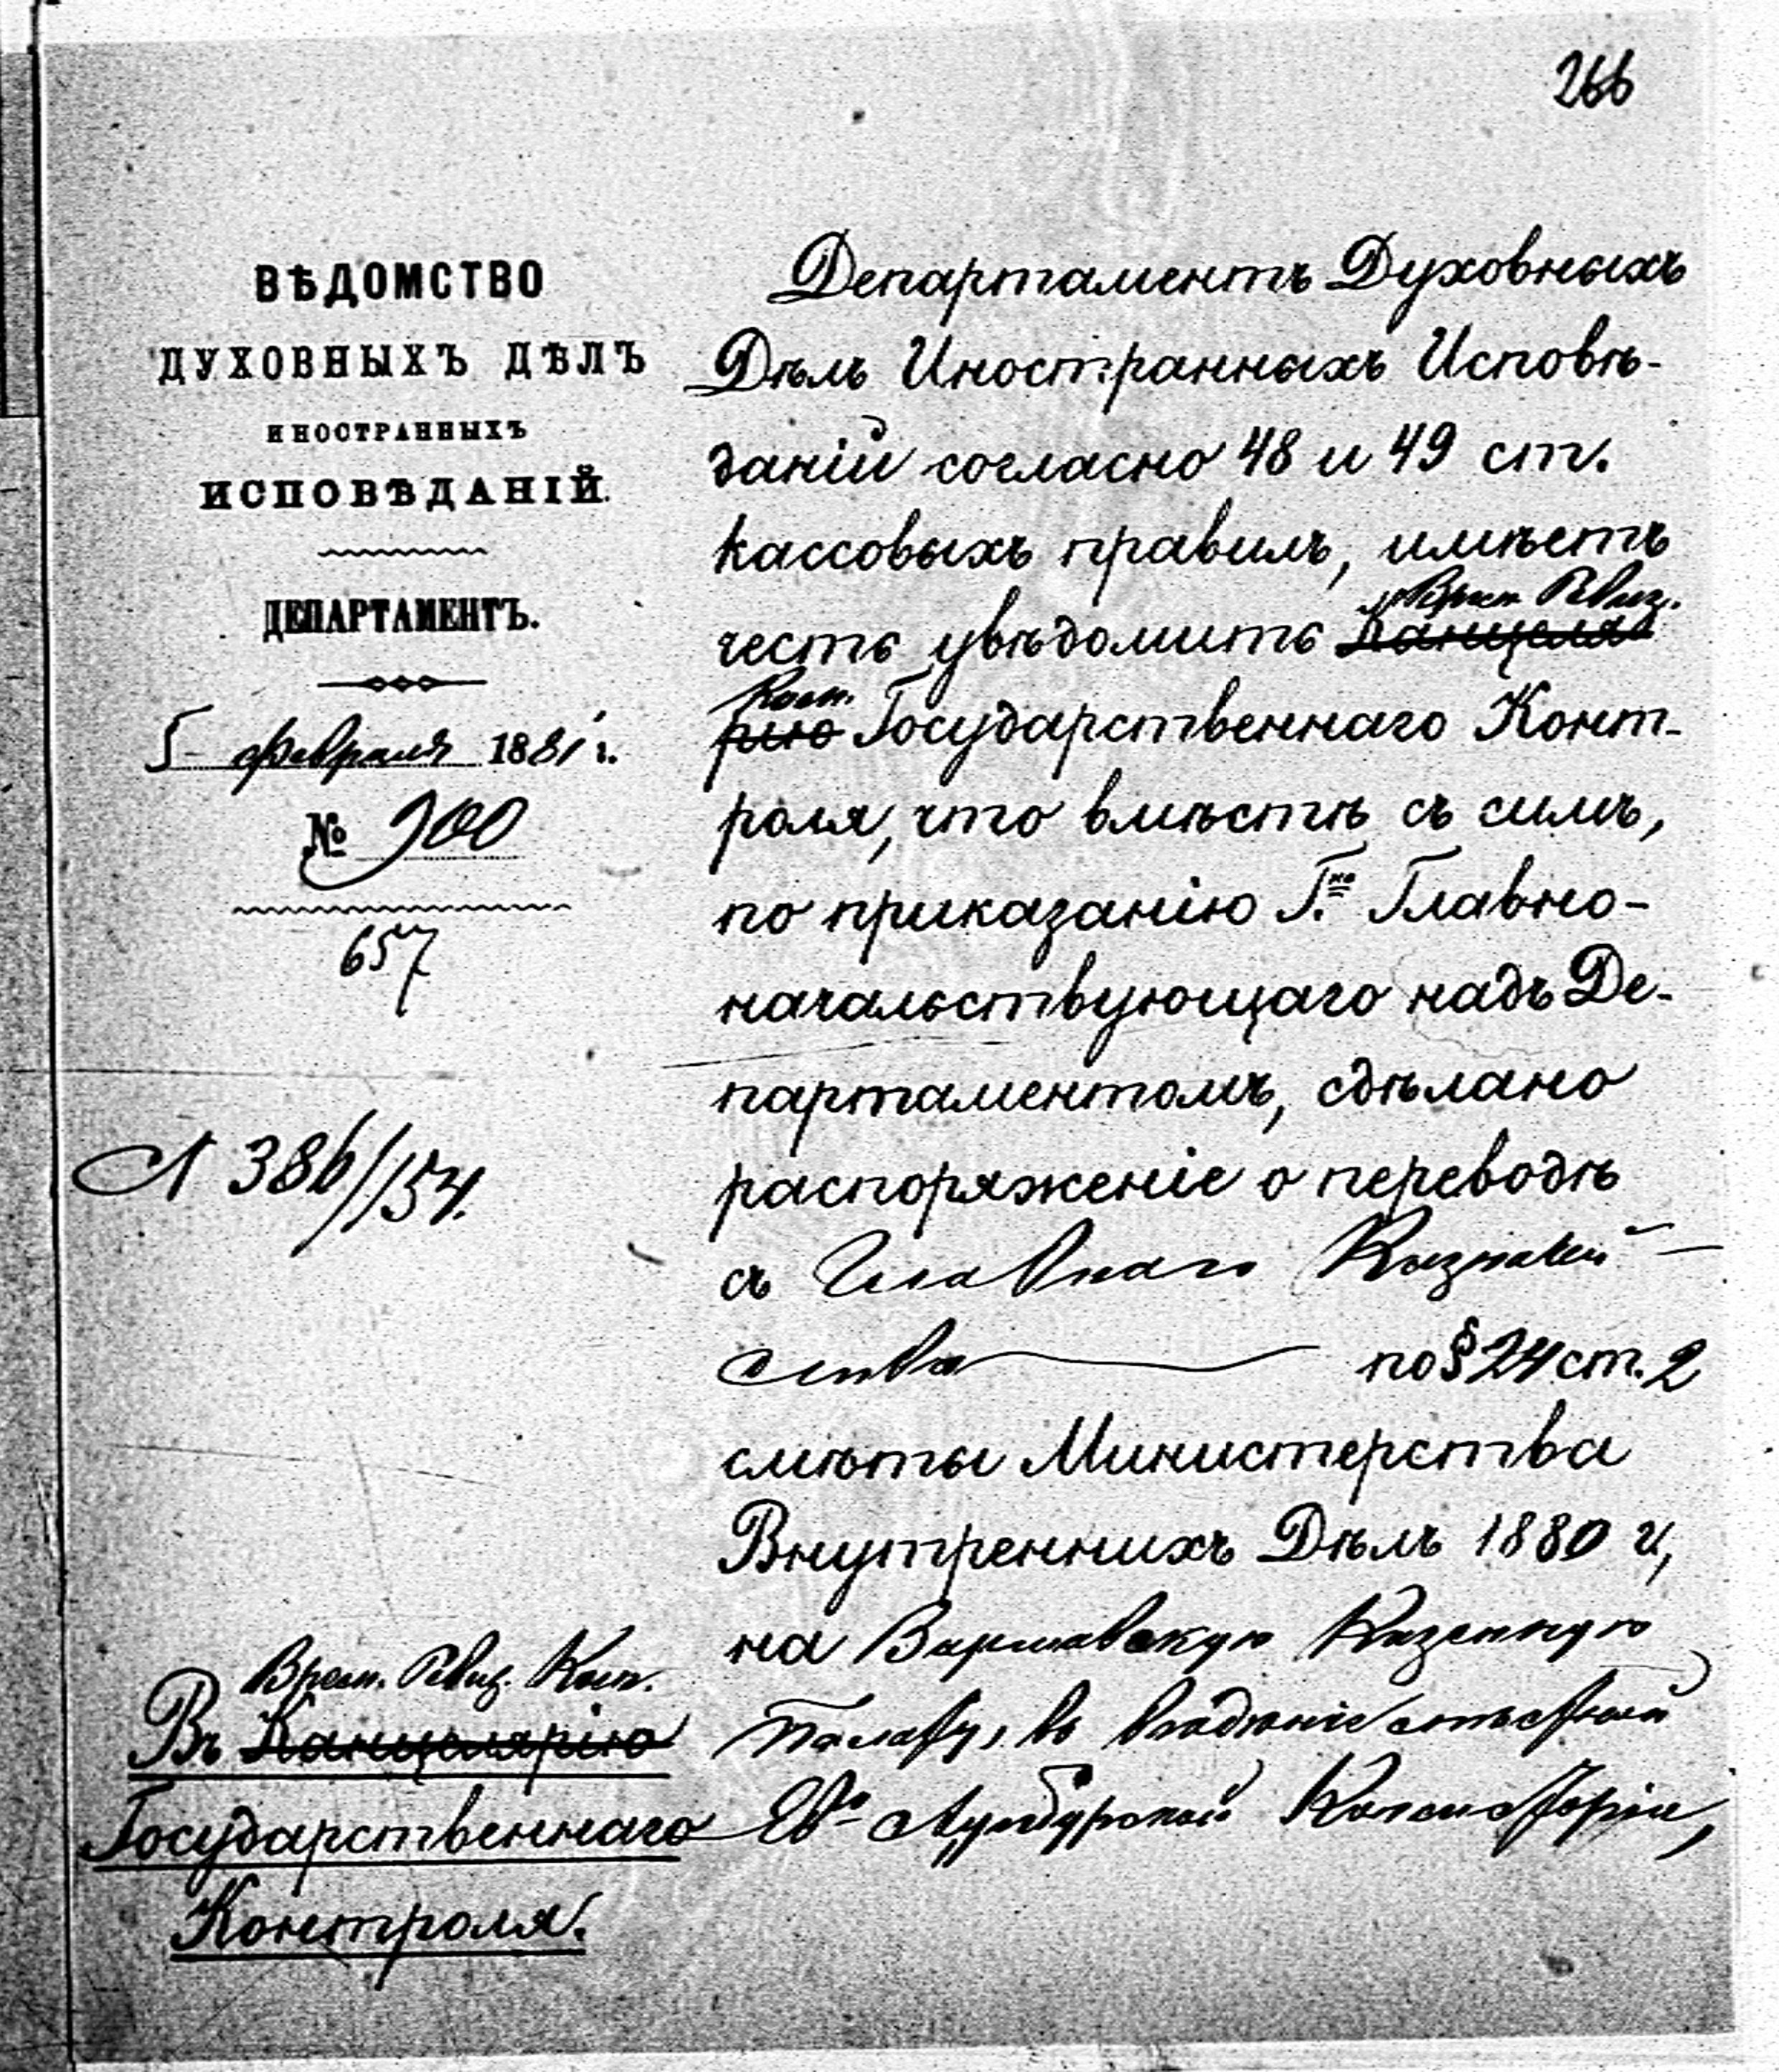 266
ВѢДОМСТВО
ДУХОВНЫХЪ ДѢЛЪ
ИНОСТРАННЫХЪ
ИСПОВѢДАНІЙ.
ДЕПАРТАМЕНТЪ.
5 февраля 1881 г.
№ 900
657
№ 386/154.
Врем. Ревиз. Ком.
Въ Канцелярію
Государственнаго
Контроля.
Департаментъ Духовныхъ
Дѣлъ Иностранныхъ Исповѣ-
даній согласно 48 и 49 ст.
кассовыхъ правилъ, имѣетъ
Врем. Ревиз.
честь увѣдомить Канцеля
Ком.
рію Государственнаго Конт-
роля, что вмѣстѣ съ симъ,
по приказанію Г.на Главно-
начальствующаго надъ Де-
партаментомъ, сдѣлано
распоряженіе о переводѣ
съ Главнаго Казначей-
ства по § 24 ст. 2
смѣты Министерства
Внутреннихъ Дѣлъ 1880 г,
на Варшавскую Казенную
Палату, въ вѣдѣніе мѣстной
Ев. Аугсбургской Консисторіи,